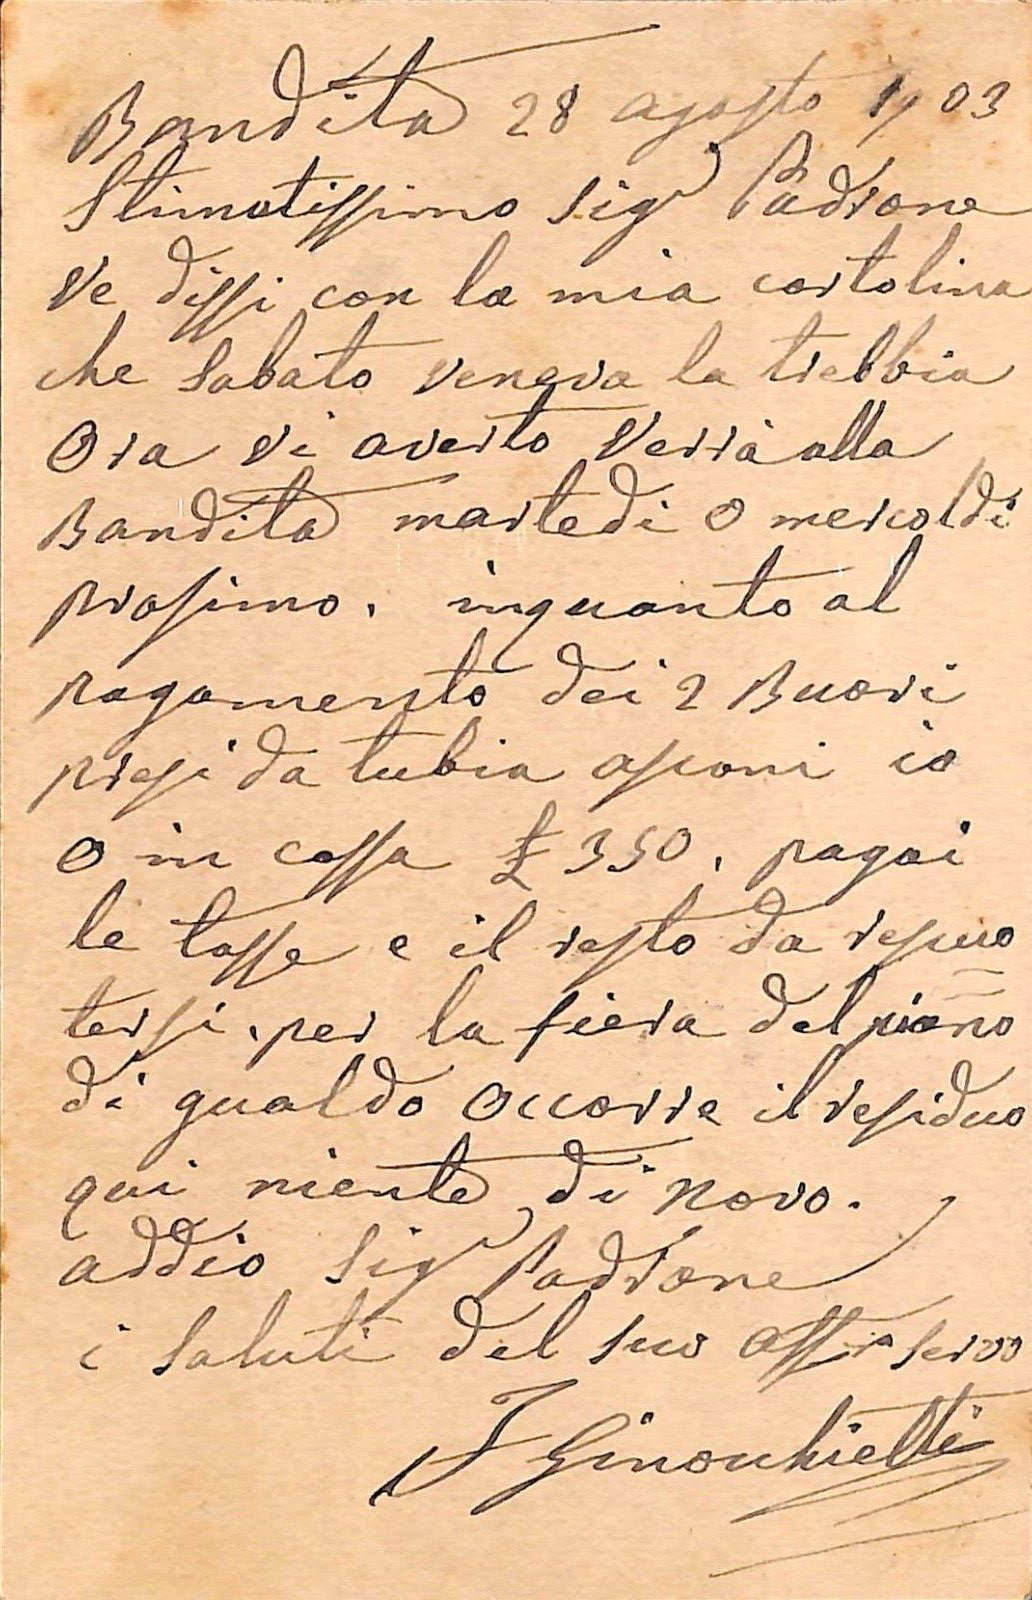 Bandita 28 agosto 1903
Stimatissimo Sigr Padrone
Ve dissi con la mia cartolina
che Sabato veneva la trebbia
Ora Vi averto Verrà alla
Bandita martedi o mercoldi
prosimo. inquanto al
pagamento dei 2 Buovi
presi da tubia
O in cassa £ 350. pagai
le tasse e il resto da
tersi. per la fiera del
di gualdo occorre il residuo
qui niente di novo.
addio Sigr Padrone
i Saluti del suo servo